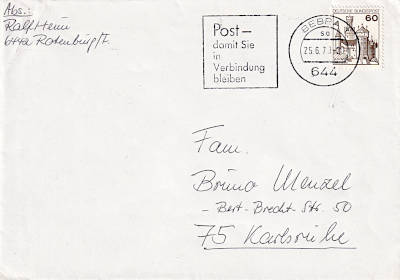 Abs.:
Ralf Heim
6442 Rotenburg/F.
Post –
damit Sie
in
Verbindung
bleiben
BEBRA
so
25.6.7
644
DEUTSCHE BUNDESPOST
60
Fam.
Bruno Menzel
- Bert-Brecht-Str. 50
75 Karlsruhe